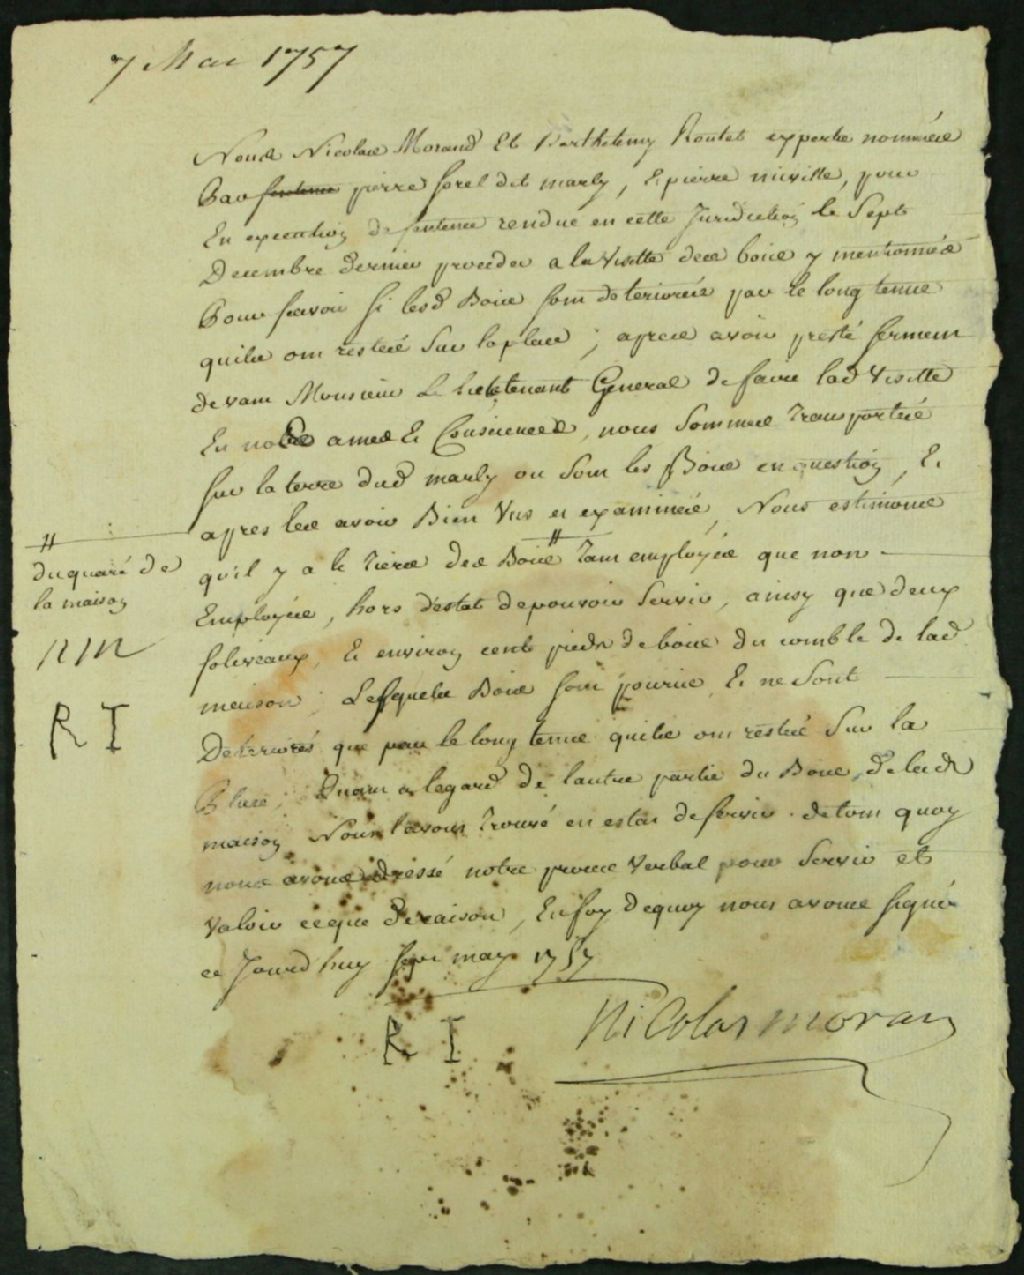 7 Mai 1757
Nous Nicolas Morand Et Barthelemy Routet experts nommées
Par sentence pierre sorel dit marly, Et pierre miville, pour
En execution de sentence rendue en cette Juridiction le Sept
Decembre dernier proceder a la Visitte des bois y mentionnés
Pour scavoir si lesd Bois sont deteriorés par le long tems
quils ont restés Sur la place ; apres avoir presté serment
devant Monsieur Le lieutenant General de faire lad Visitte
En nos ames Et Consciences, nous Sommes transportés
sur la terre dud marly ou Sont les Bois en question, Et
apres les avoir Bien Vus et examinés, Nous estimons
qu'il y a le tiers des Bois # tant employés que non
Employés, hors d'estat de pouvoir Servir, ainsy que deux
soliveaux, Et environ cent pieds de bois du comble de lad
maison ; Lesquels Bois sont pouris, Et ne Sont
Deteriorés que par le long tems quils ont restés Sur la
Place ; Quant a legard de lautre partie du Bois de lad
maison Nous l'avons trouvé en estat de servir . de tout quoy
nous avons dressé notre proces Verbal pour Servir et
Valoir ce que de raison, En foy de quoy nous avons signé
ce Jourd'huy sept may 1757
R I
Nicolas moran
#
du quaré de
la maison
NM
R I